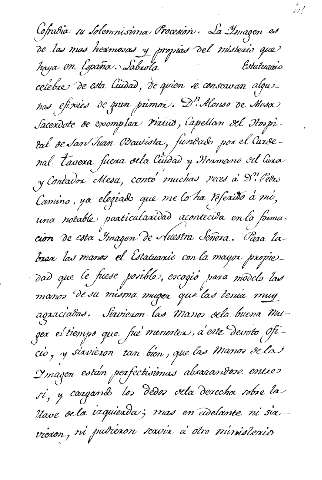 Cofradia su Solemnisima Procesion. La Imagen es
de las mas hermosas y propias del misterio que
haya en España. Labrola Estatuario
celebre de esta Ciudad, de quien se conservan algu-
nas efigies de gran primor. Dn. Alonso de
Sacerdote de exemplar virtud, Capellan del Hospi-
tal de San Juan Bautista, fundado por el Carde-
nal Tavera fuera de la Ciudad y Hermano del Cura
y Contador Mesa, contó muchas veces á Dn. Pedro
Camino, ya elogiado que me lo ha referido á mi,
una notable particularidad acontecida en la forma-
cion de esta Imagen de Nuestra Señora. Para la-
brar las manos el Estatuario con la mayor propie-
dad que le fuese posible, escogió para modelo las
manos de su misma muger que las tenia muy
agraciadas. Sirvieron las Manos de la buena Mu-
ger el tiempo que fué menester, á este devoto ofi-
cio, y sirvieron tan bien, que las Manos de la
Imagen están perfectisimas abrazandose entre
si, y cargando los dedos de la derecha sobre la
llave de la izquierda; mas en adelante ni sir-
vieron, ni pudieron servir á otro ministerio